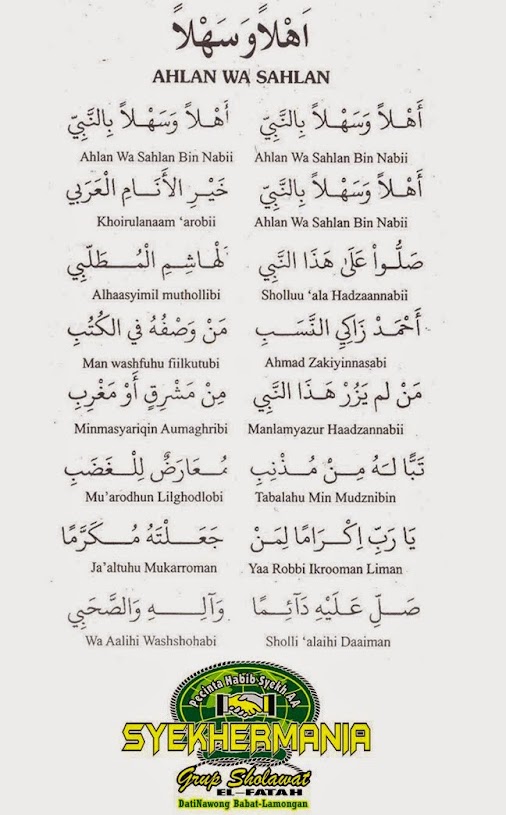 اَهْلاً وَسَهْلاً
AHLAN WA SAHLAN
أَهْلاً وَسَهْلاً بِالنَّبِيِّ أَهْلاً وَسَهْلاً بِالنَّبِيِّ
Ahlan Wa Sahlan Bin Nabii Ahlan Wa Sahlan Bin Nabii
أَهْلاً وَسَهْلاً بِالنَّبِيِّ خَيْرِ الأَنَامِ الْعَرَبِي
Khoirulanaam ‘arobii Ahlan Wa Sahlan Bin Nabii
صَلُّواْ عَلَى هَذَا النَّبِي لْهَاشِمِ الْمُطَلَّبِي
Alhaasyimil muthollibi Sholluu ‘ala Hadzaannabii
أَحْمَدْ زَاكِي النَّسَبِ مَنْ وَصْفُهُ فِي الْكُتُبِ
Man washfuhu fiilkutubi Ahmad Zakiyinnasabi
مَنْ لَم يَزُرْ هَذَا النَّبِي مِنْ مَشْرِقٍ أَوْ مَغْرِبِ
Minmasyariqin Aumaghribi Manlamyazur Haadzannabii
تَبًّا لَهُ مِنْ مُذْنِبِ مُعَارَضٌ لِلْغَضَبِ
Mu’arodhun Lilghodlobi Tabalahu Min Mudznibin
يَا رَبِّ اِكْرَامًا لِمَنْ جَعَلْتَهُ مُكَرَّمًا
Ja’altuhu Mukarroman Yaa Robbi Ikrooman Liman
صَلِّ عَلَيْهِ دَآئِمًا وَآلِهِ وَالصَّحَبِي
Wa Aalihi Washshohabi Sholli ‘alaihi Daaiman
Pecinta Habib Syekh AA
SYEKHERMANIA
Grup Sholawat
EL-FATAH
DatiNawong Babat-Lamongan